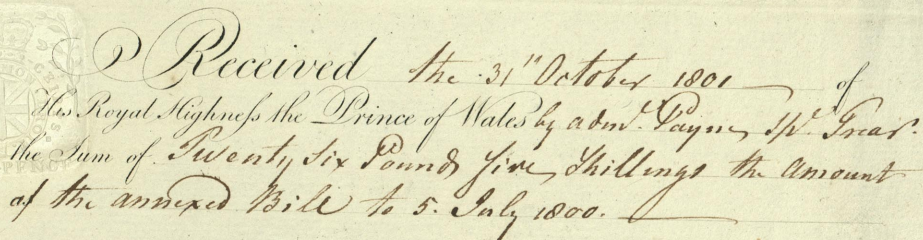 Received the 31st October 1801 of
His Royal Highneſs the Prince of Wales by adml. Payne, Treasr
the Sum of Twenty Six Pounds five Shillings the amount
of the annexed Bill to 5. July 1800.